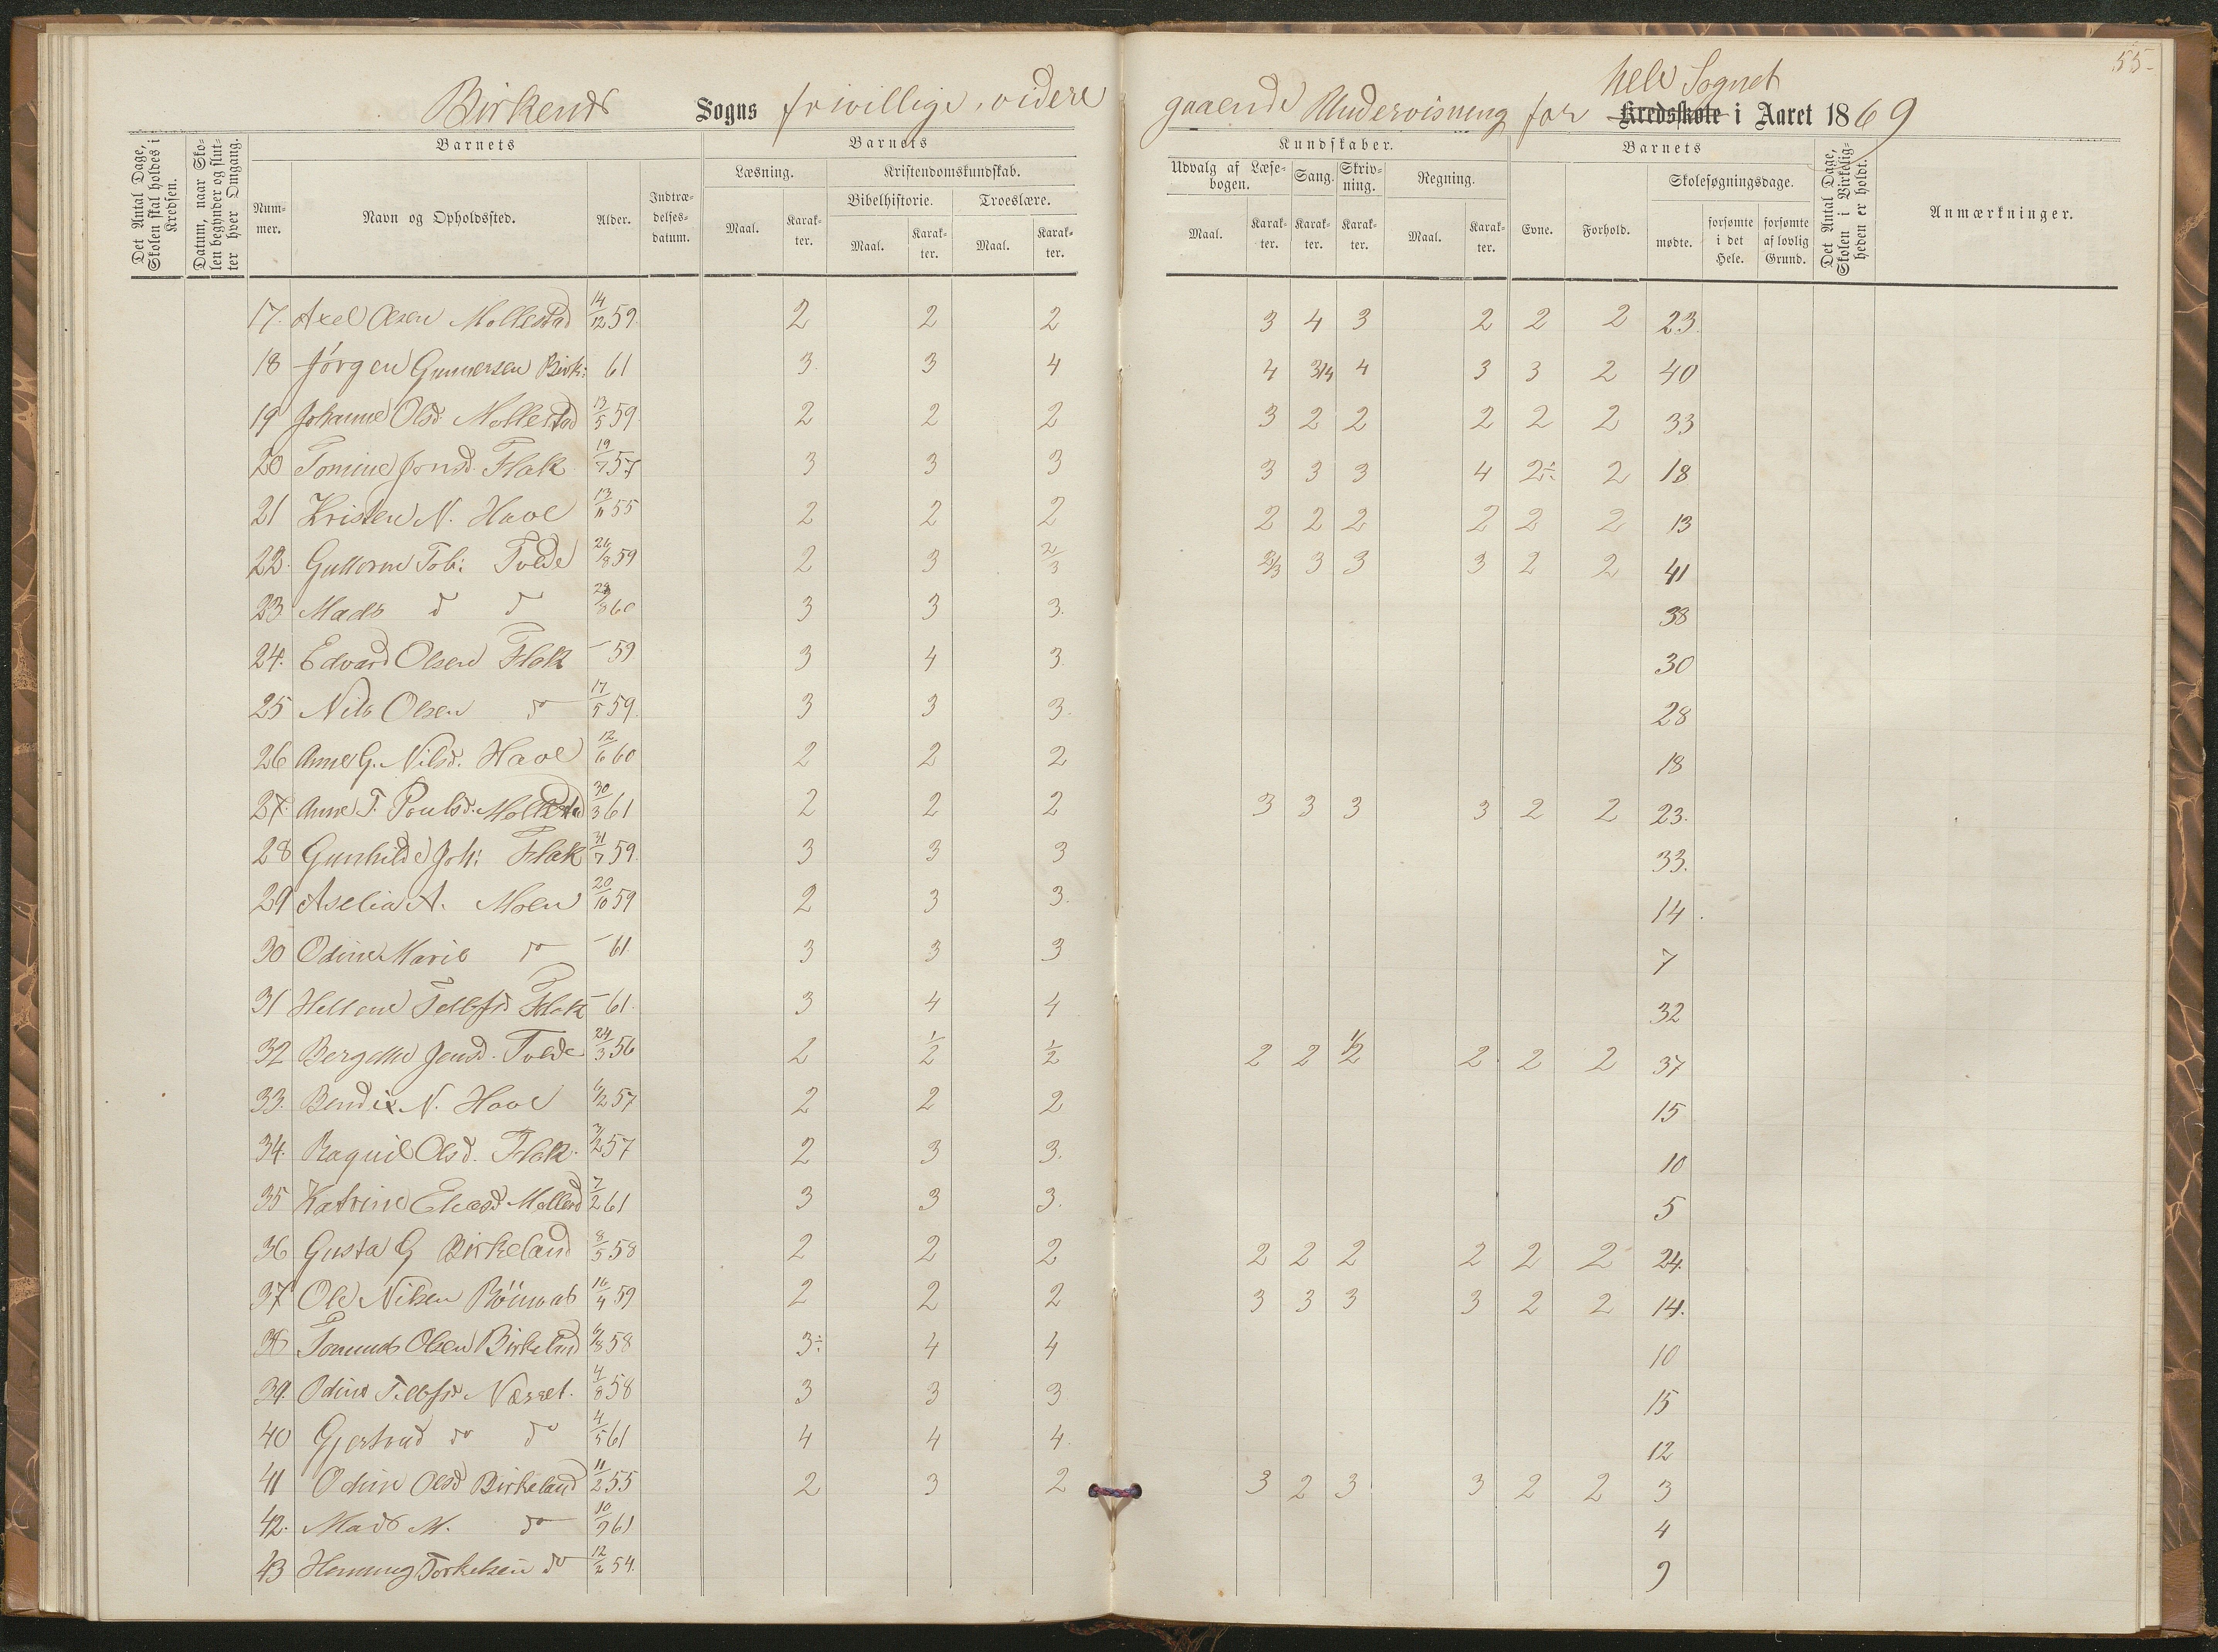 55
Birkends Sogns frivillige, videregaaende Undervisning for hele Sognet Kredsskole i Aaret 1869
Det Antal Dage, Skolen skal holdes i Kredsen.
Datum, naar Skolen begynder og slutter hver Omgang.
Barnets
Nummer.
Navn og Opholdssted.
Alder.
Indtrædelsesdatum.
Barnets
Læsning.
Maal.
Karakter.
Kristendomskundskab.
Bibelhistorie.
Maal.
Karakter.
Troeslære.
Maal.
Karakter.
Kundskaber.
Udvalg af Læsebogen.
Maal.
Karakter.
Sang.
Karakter.
Skrivning.
Karakter.
Regning.
Maal.
Karakter.
Barnets
Evne.
Forhold.
Skolesøgningsdage.
mødte.
forsømte i det Hele.
forsømte af lovlig Grund.
Det Antal Dage, Skolen i Virkeligheden er holdt.
Anmærkninger.
17. Axel Olsen Mollestad 14/12 59. 2 2 2 3 4 3 2 2 2 23.
18 Jörgen Gunnersen Birk: 61 3. 3 4 4 3/4 4 3 3 2 40
19 Johanne Olsd: Mollestad 13/5 59 2 2 2 3 2 2 2 2 2 33
20 Tomine Jensd. Flak 19/7 57 3 3 3 3 3 3 4 2÷ 2 18
21 Kristen N. Have 13/11 55 2 2 2 2 2 2 2 2 2 13
22. Guttorm Tob: Tvede 26/8 59 2 3 2/3 2/3 3 3 3 2 2 41
23. Mads do do 60 3 3 3. 38
24. Edvard Olsen Flak – 59 3 4 3. 30
25 Nils Olsen do 17/5 59. 3 3 3. 28
26 Anne G. Nilsd. Have 12/6 60 2 2 2 18
27. Anne T. Poulsd. Mollestad 30/3 61 2 2 2 3 3 3 3 2 2 23.
28 Gunhilde Joh: Flak 31/7 59. 3 3 3 33.
29 Aselia A. Moen 20/10 59 2 3 3. 14.
30 Odine Marie do – 61 3 3 3 7
31 Hellene Tellefsd Flak – 61. 3 4 4 32
32 Bergette Jensd. Tvede 24/3 56 2 1/2 1/2 2 2 1/2 2 2 2 37
33. Bendix N. Have 6/2 57 2 2 2 15
34. Raquil Olsd. Flak. 3/2 57 2 3 3. 10
35 Katrine Eliasd Mollestd 7/2 61 3 3 3. 5
36 Gusta G Birkeland 8/5 58 2 2 2 2 2 2 2 2 2 24.
37 Ole Nilsen 16/4 59 2 2 2 3 3 3 3 2 2 14.
38 Olsen Birkeland 6/8 58 3÷ 4 4 10
39. Odine Tellefsd Næsset. 4/8 58 3 3 3 15
40 Gjertrud do do 4/5 61 4 4 4. 12
41 Odine Olsd Birkeland 11/2 55 2 3 2 3 2 3 3 2 2 3
42. Mads M. do 10/9 61 4
43 Henning Torkelsen do 12/2 54. 9